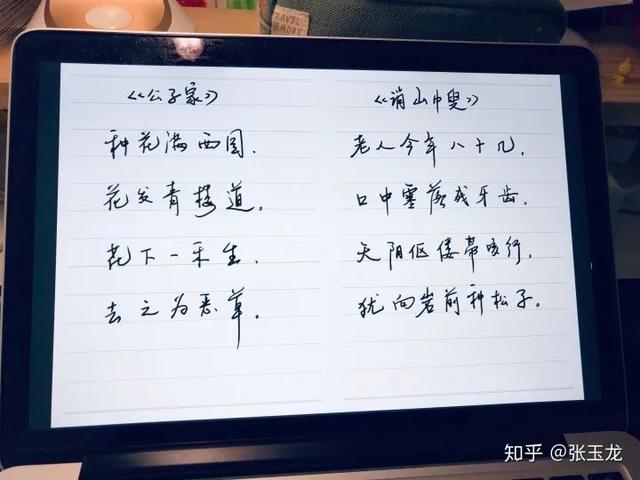 《公子家》
种花满西园.
花发青楼道.
花下一禾生.
去之为恶草.
《诮山中叟》
老人今年八十几.
口中零落残牙齿.
天阴伛偻带咳行.
犹向岩前种松子.
知乎 @张玉龙